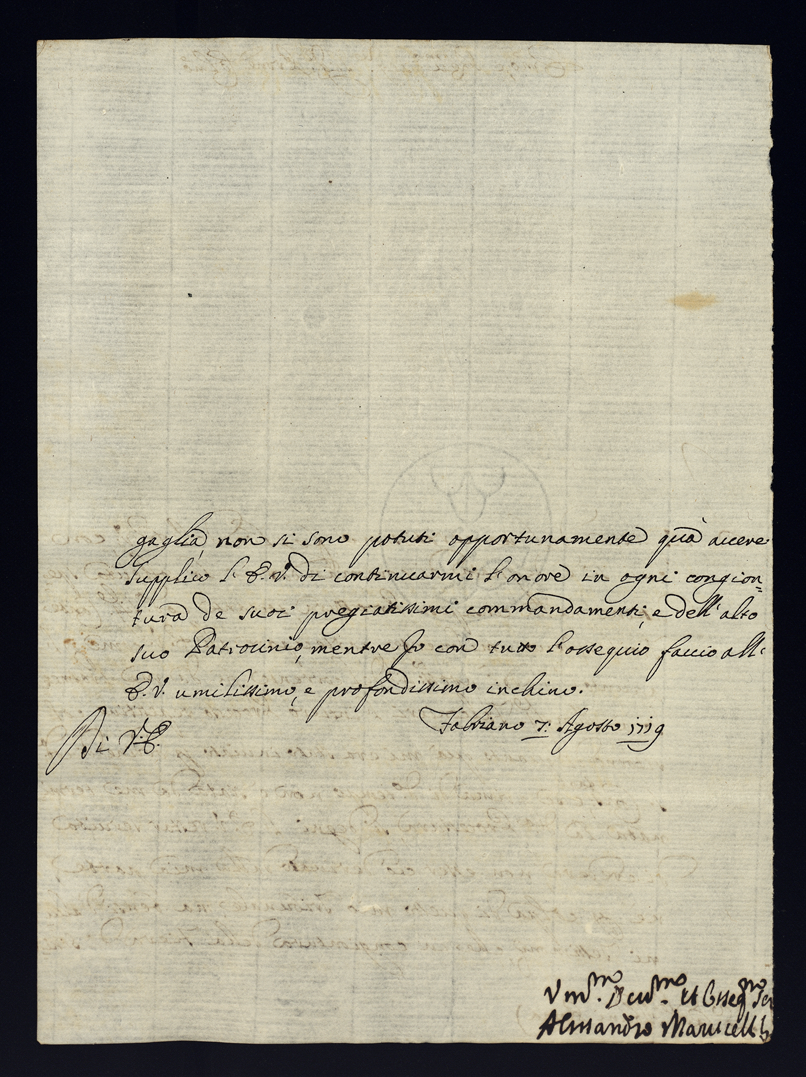 gaglia, non si sono potuti opportunamente quà avere
supplico l'E.V. di continuarmi l'onore in ogni congion=
tura de suoi pregiatissimi commandamenti, e dell'alto
suo Patrocinio, mentre Io con tutto l'ossequio faccio all'
E.V. umilissimo, e profondissimo inchino.
Di V.E.
Fabriano 7: Agosto 1719
Vm.mo Deu.mo et Osseq.mo Ser
Alessandro Marucelli